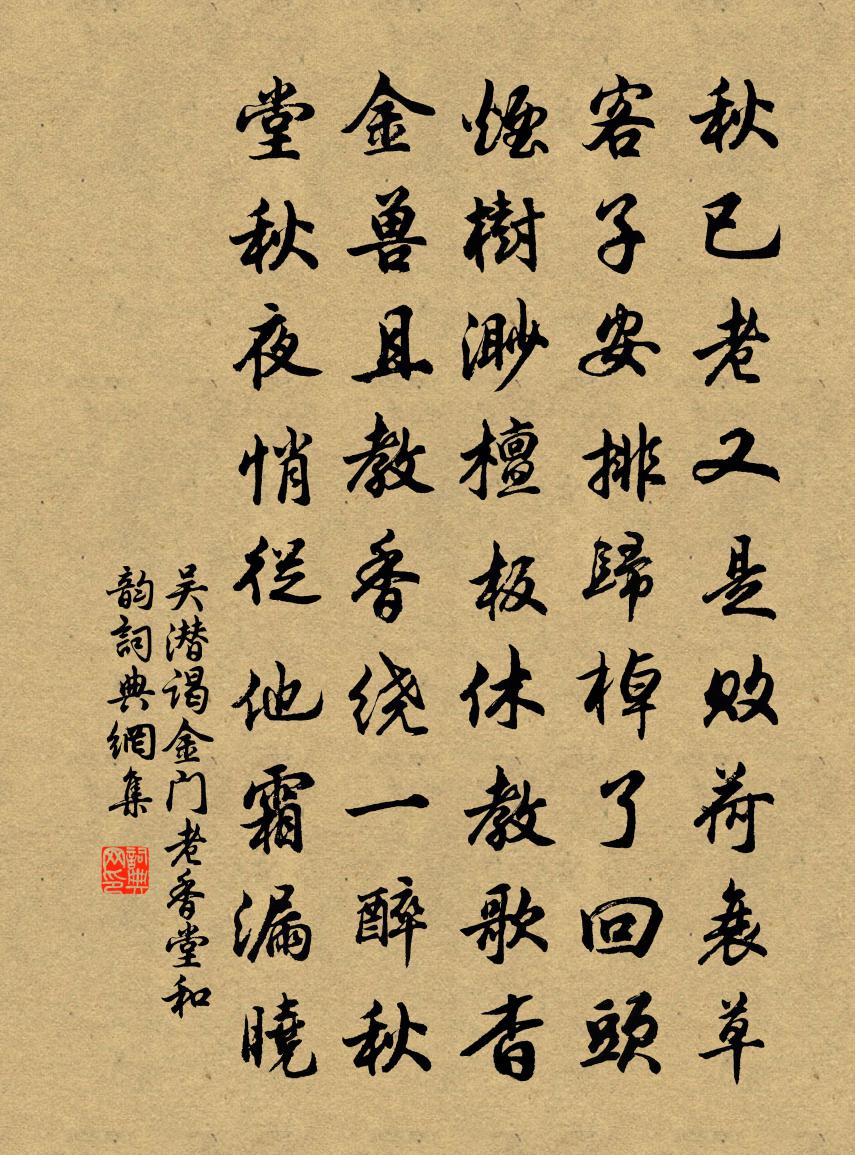 秋已老又是败荷衰草
客子安排歸棹了回頭
煙樹渺檀板休教歌杳
金兽且教香绕一醉秋
堂秋夜悄從他霜漏曉
吴潜谒金门老香堂和
韵詞典網集
詞典网印